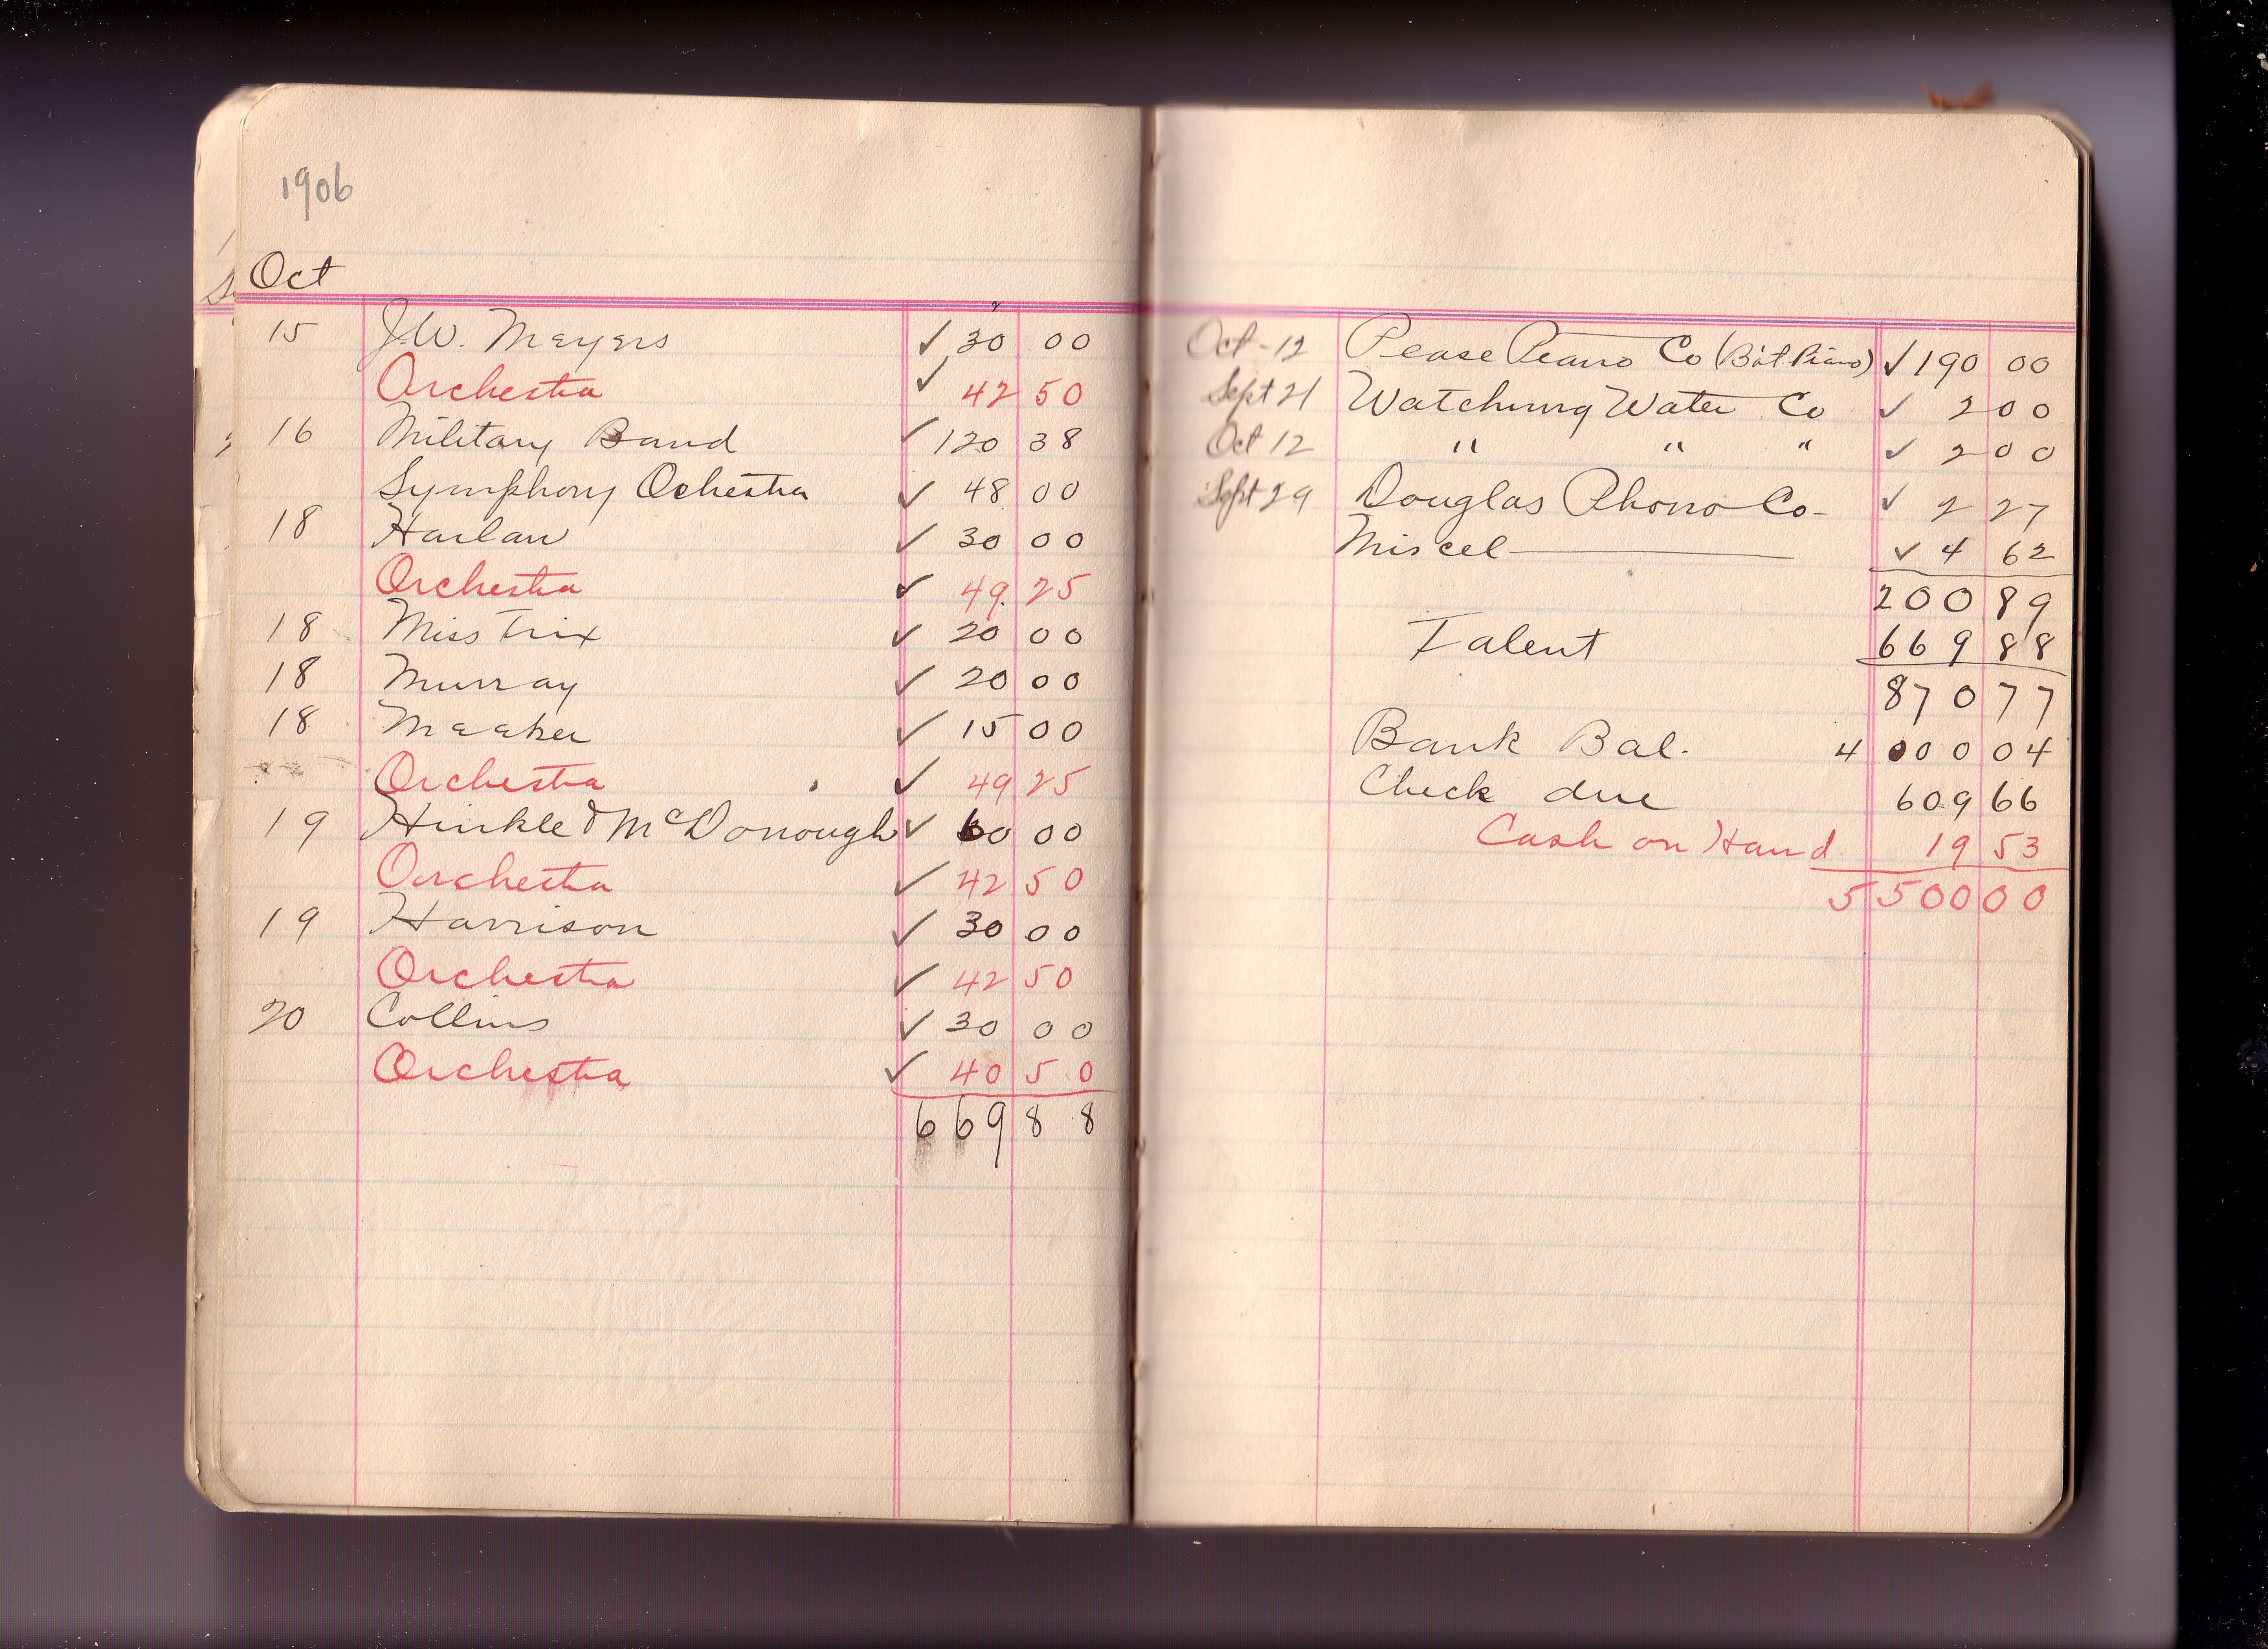 1906
Oct
15 J.W. Meyers ✓ 30 00
Orchestra ✓ 42 50
16 Military Band ✓ 120 38
Symphony Ochestra ✓ 48 00
18 Harlan ✓ 30 00
Orchestra ✓ 49 25
18 Miss Trix ✓ 20 00
18 Murray ✓ 20 00
18 Meeker ✓ 15 00
Orchestra ✓ 49 25
19 Hinkle & McDonough ✓ 60 00
Orchestra ✓ 42 50
19 Harrison ✓ 30 00
Orchestra ✓ 42 50
20 Collins ✓ 30 00
Orchestra ✓ 40 50
669 88
Oct-12 Pease Piano Co (Bat Piano) ✓ 190 00
Sept 21 Watchung Water Co ✓ 2 00
Oct 12 " " " ✓ 2 00
Sept 29 Douglas Phono Co- ✓ 2 27
Miscel ✓ 4 62
200 89
Talent 669 88
870 77
Bank Bal. 4 000 04
Check due 609 66
Cash on Hand 19 53
5 500 00